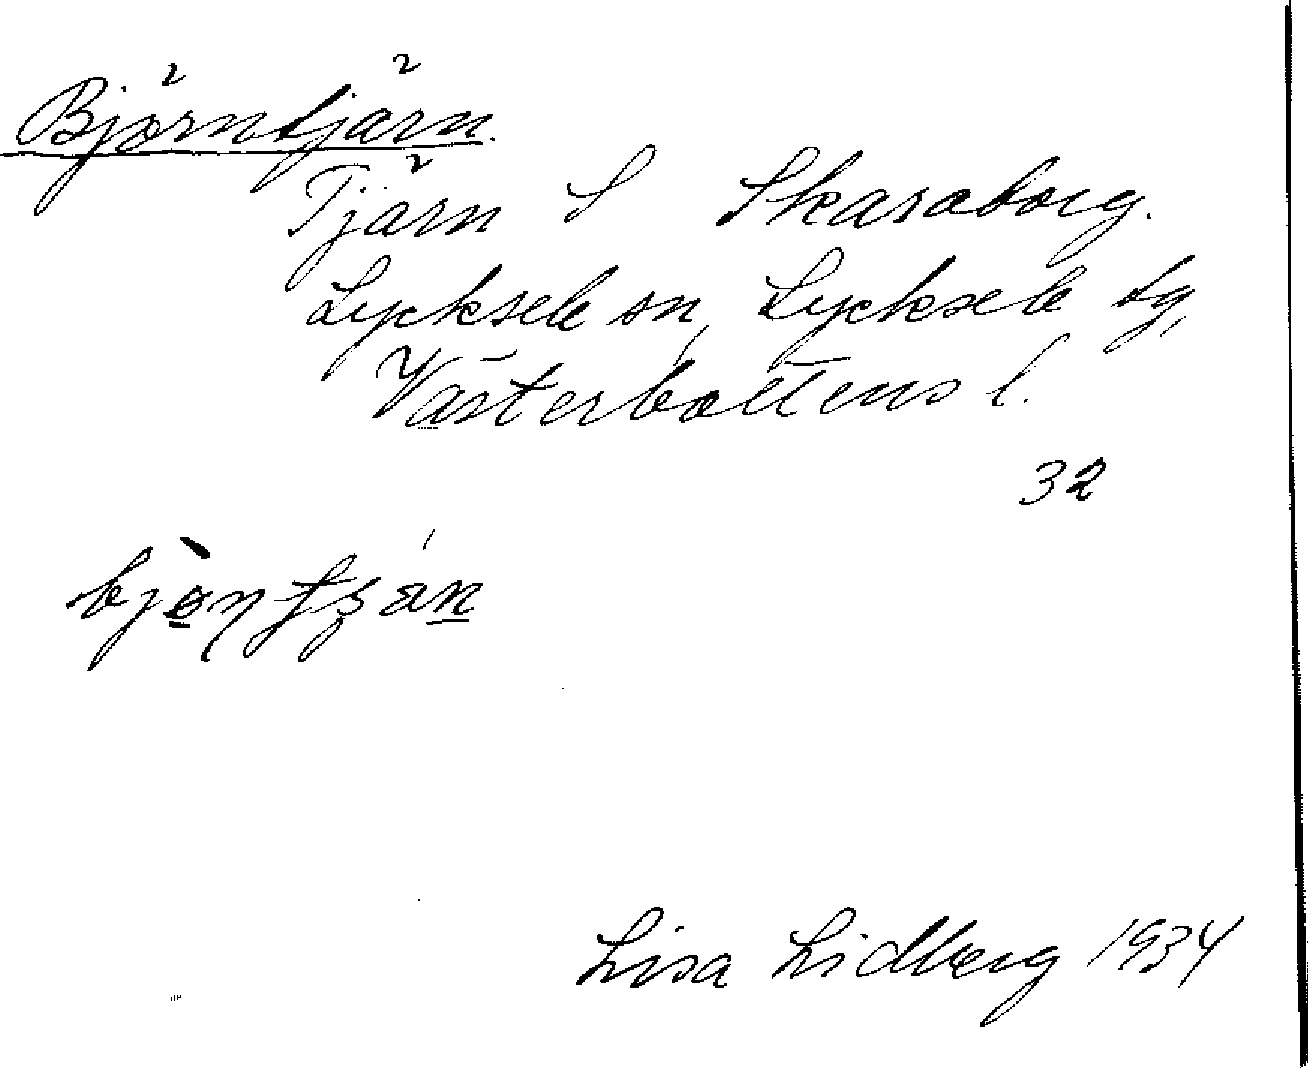 Björntjärn.
Tjärn S Skaraborg.
Lycksele sn, Lycksele tg,
Västerbottens l.
32
Lisa Lidberg 1934